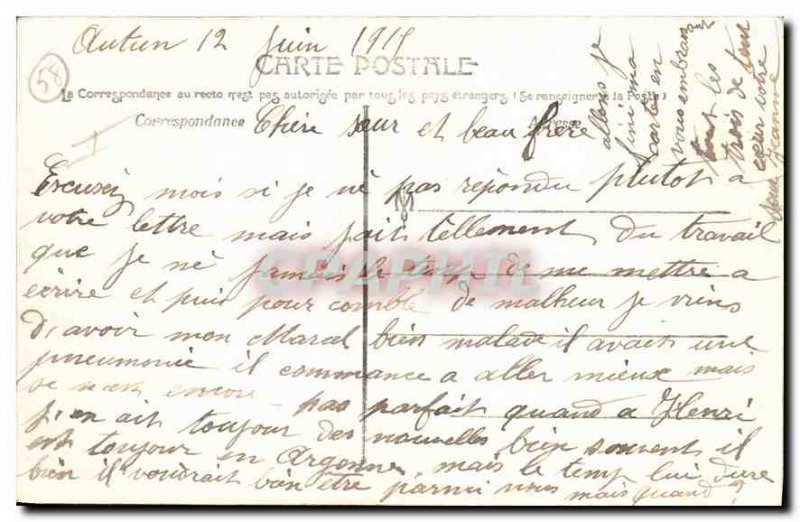 Autun 12 Juin 1915
58
CARTE POSTALE
La Correspondance au recto n'est pas autorisée par tous les pays étrangers (Se renseigner à la Poste)
Correspondance
Adresse
Chère sœur et beau frère
Excusez mois si je né pas répondu plutot a
votre lettre mais jait tellement du travail
que je né jamais le temp de me mettre a
écrire et puis pour comble de malheur je viens
d'avoir mon Marcel bien malade il avait une
pneumonie il commance a aller mieux mais
se n'est encore pas parfait quand a Henri
j'en ait toujour des nouvelles bien souvent il
est toujour en Argonne, mais le temp lui dure
bien il voudrait bien etre parmi vous mais quand ?
allons je
finit ma
carte en
vous embrassant
tout les
trois de tout
cœur votre
sœur Jeanne
CPAPHIL